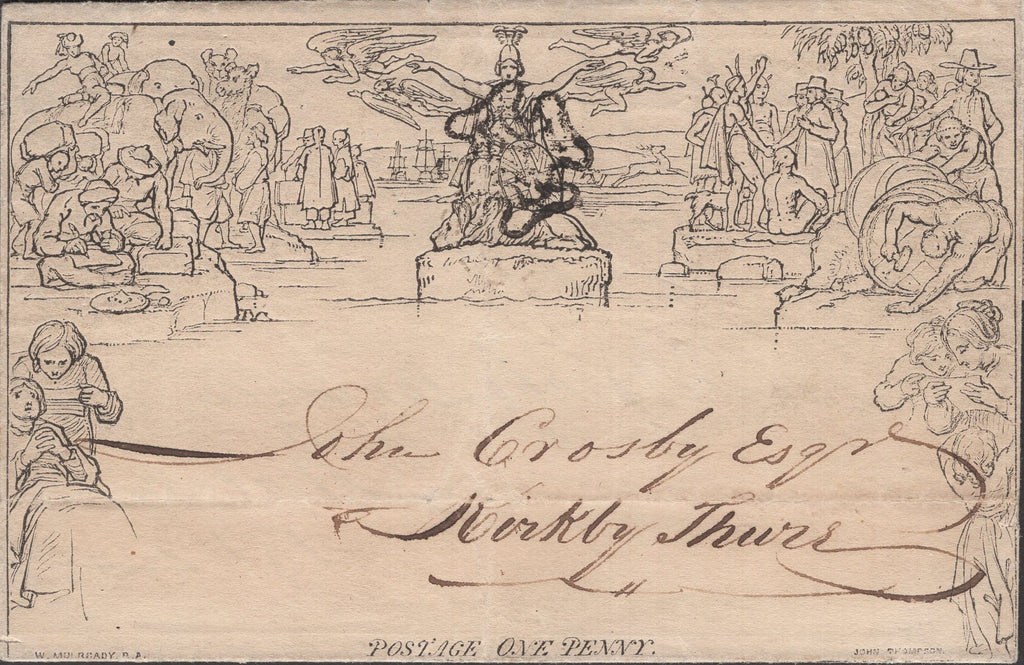 John Crosby Esqr
Kirkby Thure
POSTAGE ONE PENNY.
W. MULREADY. R.A.
JOHN THOMPSON.